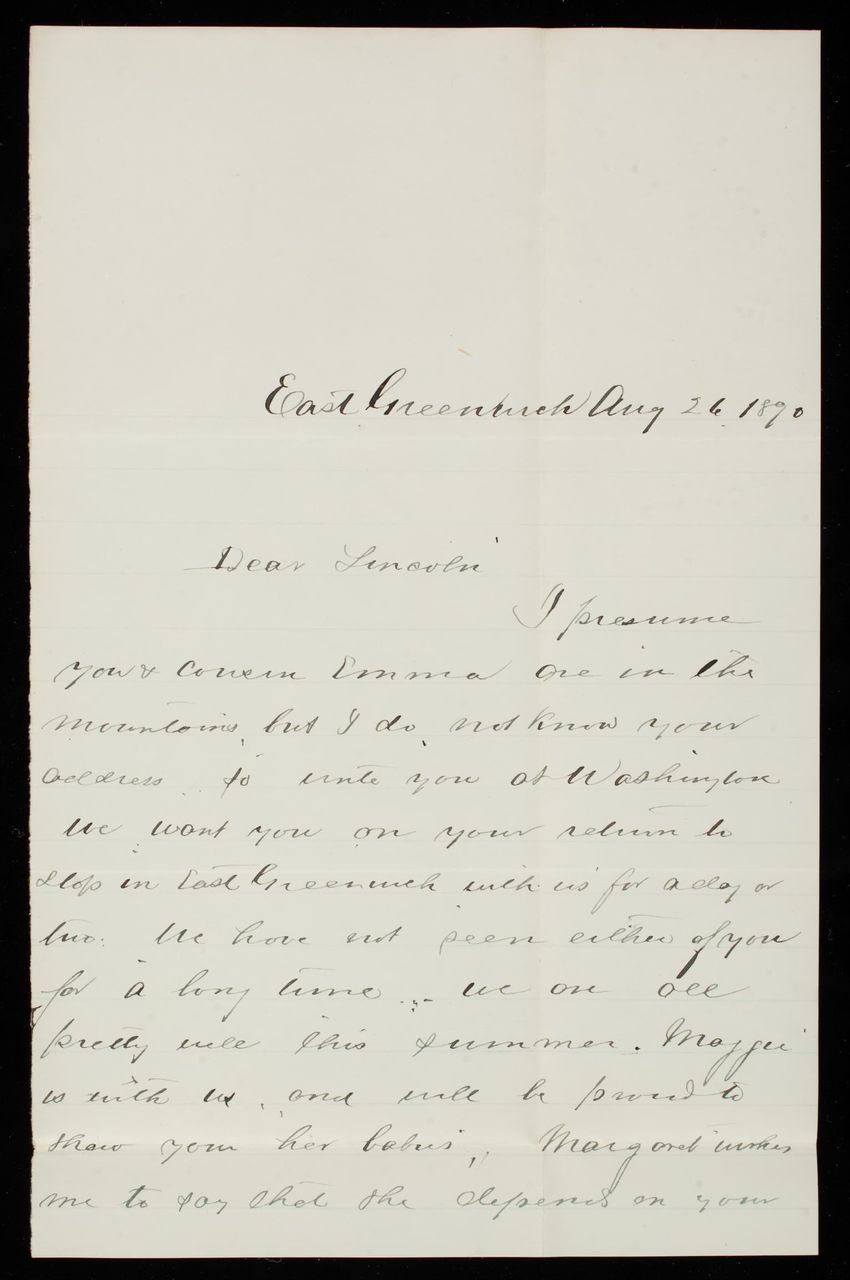 East Greenwich Aug 26. 1890
Dear Lincoln
I presume
you & cousin Emma are in the
mountains, but I do not know your
address. So write you at Washington
We want you on your return to
stop in East Greenwich with us for a day or
two. We have not seen either of you
for a long time. We are all
pretty well this summer. Maggie
is with us, and will be proud to
show you her babies. Margaret wishes
me to say that she depends on your